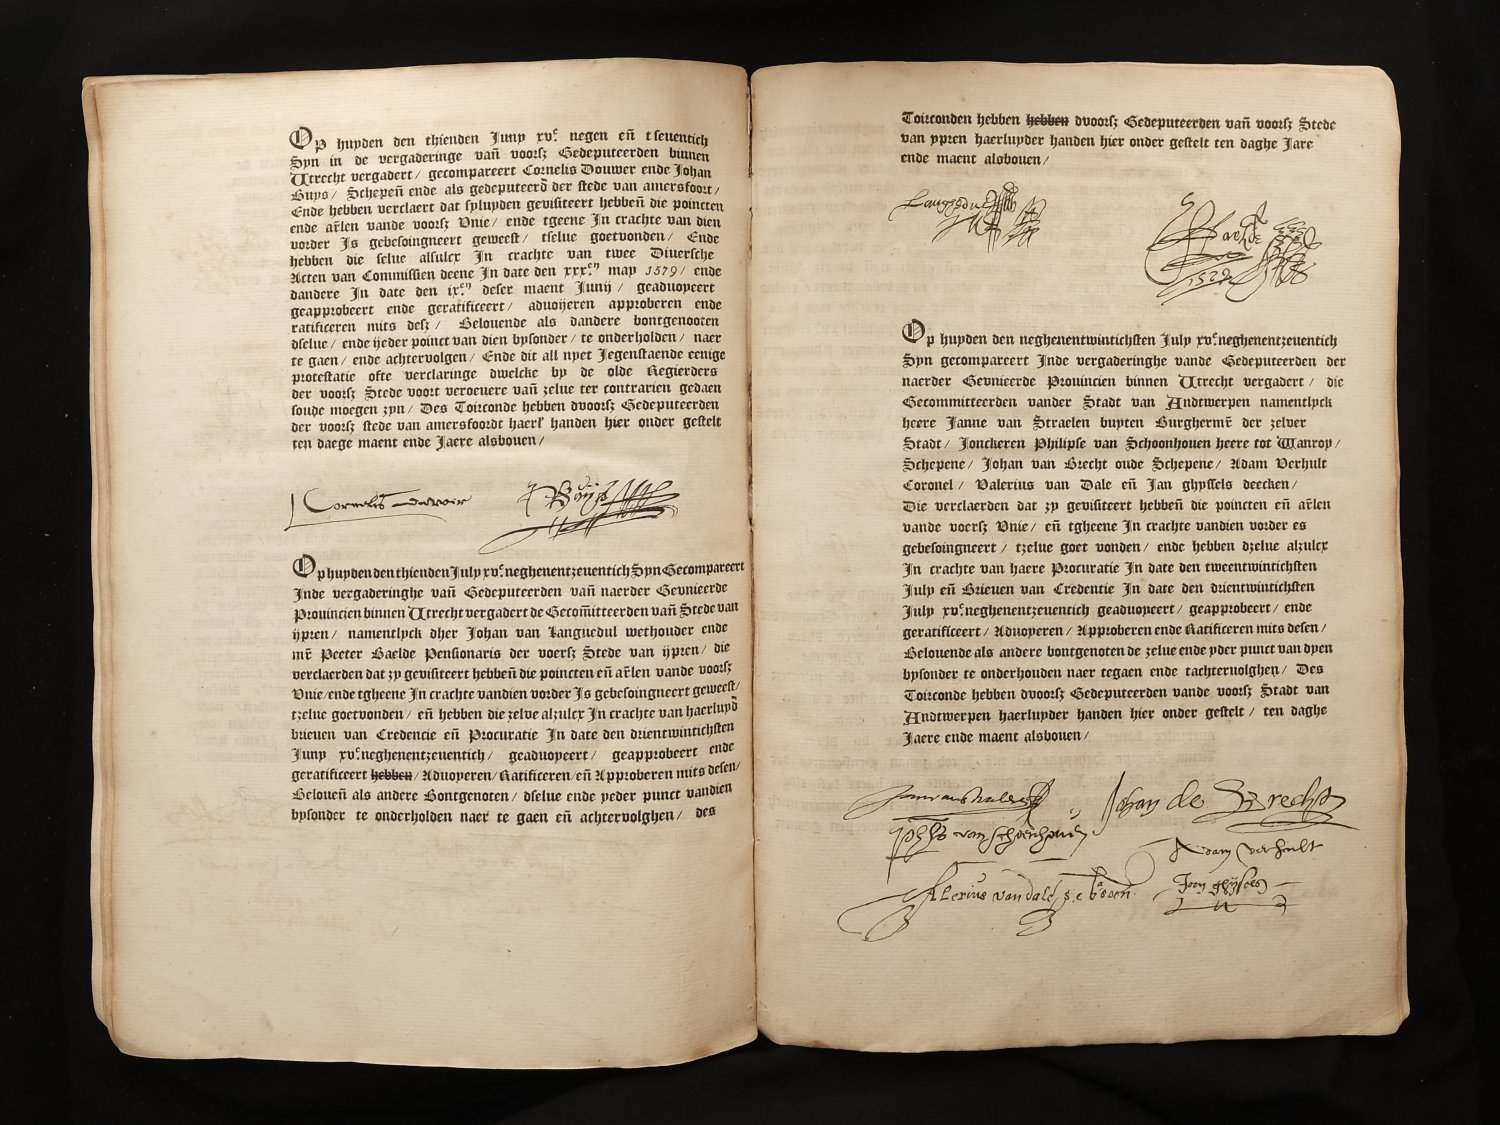 Op huyden den thienden Juny xvᶜ negen en̄ tseuentich
Syn in de vergaderinge van̄ voorsz Gedeputeerden binnen
Utrecht vergadert / gecompareert Cornelis Douwer ende Johan
Buys / Schepen̄ ende als gedeputeerd̄ der stede van amersfoort /
Ende hebben verclaert dat syluyden geuisiteert hebben̄ die poincten
ende ar̄len vande voorsz Vnie / ende tgeene In crachte van dien
vorder Is gebesoingneert geweest / tselue goetvonden / Ende
hebben die selue alsulcx In crachte van twee Diuersche
Acten van Commissien deene In date den xxxᵉⁿ may 1579 / ende
dandere In date den ixᵉⁿ deser maent Junij / geaduoyeert
geapprobeert ende geratificeert / aduoijeren approberen ende
ratificeren mits desz / Belouende als dandere bontgenooten
dselue / ende ijeder poinct van dien bysonder / te onderholden / naer
te gaen / ende achtervolgen / Ende dit all nyet Jegenstaende eenige
protestatie ofte verclaringe dwelcke by de olde Regierders
der voorsz Stede voort veroeuere van̄ zelue ter contrarien gedaen
soude moegen zyn / Des Toirconde hebben dvoorsz Gedeputeerden
der voorsz stede van amersfoordt haerr̄ handen hier onder gestelt
ten daege maent ende Jaere alsbouen /
Cornelis douwer
Buijs
Op huyden den thienden July xvᶜ neghenentzeuentich Syn Gecompareert
Inde vergaderinghe van̄ Gedeputeerden van̄ naerder Gevnieerde
Prouincien binnen Utrecht vergadert de Gecom̄itteerden van̄ Stede van
ijpren / namentlyck dher Johan van Languedul wethouder ende
mr̄ Peeter Baelde Pensionaris der voersz Stede van ijpren / die
verclaerden dat zy gevisiteert hebben̄ die poincten en̄ ar̄len vande voorsz
Vnie / ende tgheene In crachte vandien vorder Is gebesoingneert geweest /
tzelue goetvonden / en̄ hebben die zelve alzulcx In crachte van haerluyd̄
brieuen van Credencie en̄ Procuratie In date den drientwintichsten
Juny xvᶜ neghenentzeuentich / geaduoyeert / geapprobeert ende
geratificeert hebben / Aduoyeren / Ratificeren / en̄ Approberen mits desen /
Belouen̄ als andere Bontgenoten / dselue ende yeder punct vandien
bysonder te onderholden naer te gaen en̄ achtervolghen / des
Toirconden hebben hebben dvoorsz Gedeputeerden van̄ voorsz Stede
van ypren haerluyder handen hier onder gestelt ten daghe Jare
ende maent alsbouen /
Languedul
Baelde
1579
Op huyden den neghenentwintichsten July xvᶜ neghenentzeuentich
Syn gecompareert Inde vergaderinghe vande Gedeputeerden der
naerder Gevnieerde Prouincien binnen Utrecht vergadert / die
Gecommitteerden vander Stadt van Andtwerpen namentlyck
heere Janne van Straelen buyten Burghermr̄ der zelver
Stadt / Jonckeren Philipse van Schoonhouen heere tot Wanroy /
Schepene / Johan van Brecht oude Schepene / Adam Verhult
Coronel / Valerius van Dale en̄ Jan ghyssels deecken /
Die verclaerden dat zy gevisiteert hebben̄ die poincten en̄ ar̄len
vande voersz Vnie / en̄ tgheene In crachte vandien vorder es
gebesoingneert / tzelue goet vonden / ende hebben dzelue alzulcx
In crachte van haere Procuratie In date den tweentwintichsten
July en̄ Brieuen van Credentie In date den drientwintichsten
July xvᶜ neghenentzeuentich geaduoyeert / geapprobeert / ende
geratificeert / Aduoyeren / Approberen ende Ratificeren mits desen /
Belouende als andere bontgenoten de zelue ende yder punct van dyen
bysonder te onderhouden naer tegaen ende tachteruolghen / Des
Toirconde hebben dvoorsz Gedeputeerden vande voorsz Stadt van
Andtwerpen haerluyder handen hier onder gestelt / ten daghe
Jaere ende maent alsbouen /
Jan van stralen
Johan de Brecht
Phls van schoenhouen
Adam verhult
Valerius van dale
Jan ghyssels